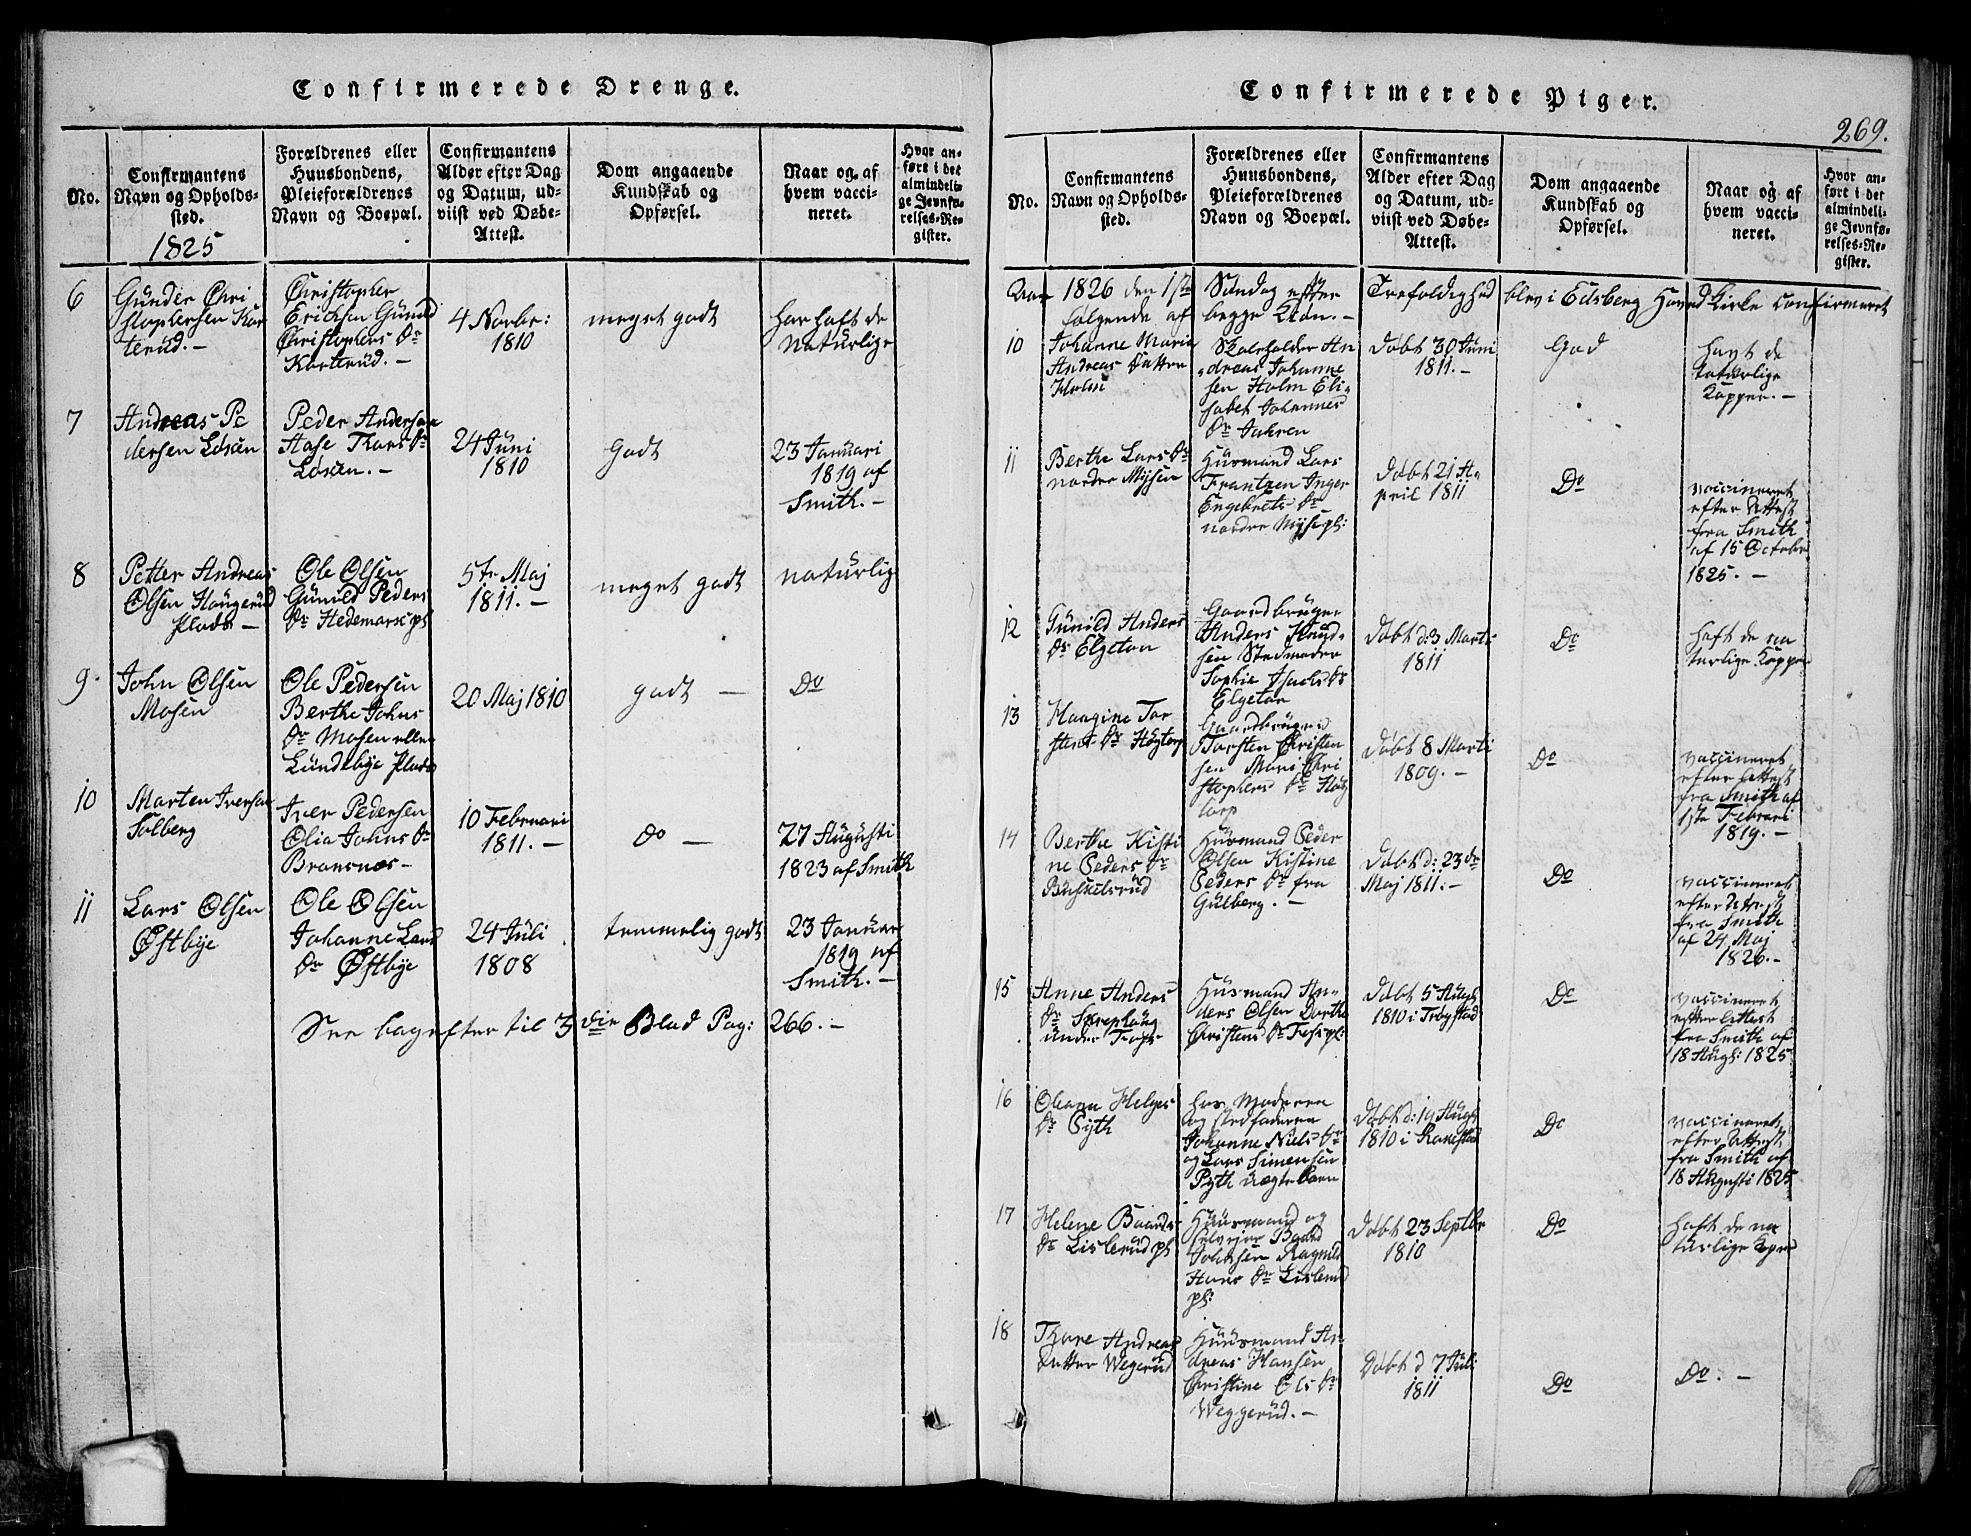 Confirmerede Drenge.
No.
Confirmantens
Navn og Opholds-
sted.
1825
Forældrenes eller
Huusbondens,
Pleieforældrenes
Navn og Boepæl.
Confirmantens
Alder efter Dag
og Datum, ud-
viist ved Døbe-
Attest.
Dom angaaende
Kundskab og
Opførsel.
Naar og af
hvem vacci-
neret.
Hvor an-
ført i det
almindeli-
ge Jevnfø-
relses-Re-
gister.
6
Gunder Chri
stophersen Kar
terud.-
Christopher
Ericksen Gunild
Christophers Dr
Karterud.-
4 Novbr:
1810
meget godt
har haft de
Naturlige
7
Andreas Pe
dersen Løsen
Peder Andersen
Aase Thores Dr
Løsen.-
24 Juni
1810
Godt
23 Januari
1819 af
Smith.-
8
Petter Andreas
Olsen Haugerud
Plads-
Ole Olsen
Gunild Peders
Dr Hedemark pl
5te Maj
1811.-
meget godt
naturlig
9.
John Olsen
Mosen
Ole Pedersen
Berthe Johns
Dr Mosen eller
Lundebye Plads
20 Maj 1810
godt -
Do
10
Marten Iversen
Solberg
Iver Pedersen
Olia Johns Dr
Bransnæs-
10 Februari
1811.-
Do -
27 Augusti
1823 af Smith
11
Lars Olsen
Østbye
Ole Olsen
Johanne Lars
Dr Østbye
24 Juli
1808
temmelig godt
23 Januar
1819 af
Smith.-
See bagefter til 3die Blad Pag: 266.-
Confirmerede Piger.
269.
No.
Confirmantens
Navn og Opholds-
sted.
Forældrenes eller
Huusbondens,
Pleieforældrenes
Navn og Boepæl.
Confirmantens
Alder efter Dag
og Datum, ud-
viist ved Døbe-
Attest.
Dom angaaende
Kundskab og
Opførsel.
Naar og af
hvem vacci-
neret.
Hvor an-
ført i det
almindeli-
ge Jevnfø-
relses-Re-
gister.
Aar 1826 den 1ste Søndag efter Trefoldighed blev i Edsberg Hoved Kirke confirmeret
følgende af begge Kiøn.-
10
Johanne Maria
Andreas Datter
Holm
Skoleholder An
dreas Johanne
sen Holm Eli-
sabet Johannes
Dr Jahren
Døbt 30 Juni
1811.-
God
havt de
naturlige
Kopper.-
11
Berthe Lars Dr
nordre Mysen
Husmand Lars
Frantzen Inger
Engebrets Dr
nordre Myse pl:
Døbt 21 A-
pril 1811
Do
vaccineret
efter Attest
fra Smith
af 15 Octobr
1825.-
12
Gunild Anders
Dr Elgeton
Gaardbruger
Anders Knud-
sen Stedmoder
Sophie Isachs Dr
Elgeton
Døbt d: 3 Marti
1811
Do
haft de na
turlige Kopper
13
Haagine Tor
stens Dr Høytorp
Gaardbruger
Torsten Christen
sen Mari Chri
stophers Dr Høy
torp
Døbt 8 Marti
1809.-
Do
vaccineret
efter Attest
fra Smith af
1ste Februari
1819.-
14
Berthe Kisti
ne Peders Dr
Buskelsrud
Husmand Peder
Olsen Kistine
Peders Dr fra
Gulberg.-
Døbt d: 23de
Maj 1811.-
Do
vaccineret
efter Attest
fra Smith
af 24 Maj
1826.-
15
Anne Anders
Dr
under
Husmand An-
ders Olsen Dorthe
Christens Dr
Døbt 5 Augs
1810 i Trøgstad
Do
vaccineret
efter Attest
fra Smith af
18 Augs: 1825
16
Oleana Helges
Dr Pyth
hos Moderen
og stedfaderen
Johanne Niels Dr
og Lars Simensen
Pyth uægte Barn
Døbt d: 19 Augs
1810 i Rakestad
Do
vaccineret
efter Attest
fra Smith af
18 Augusti 1825
17
Helene Baards
Dr Lislerud pl
Huusmand og
Selvejer Baard
Johnsen Ragnild
Hans Dr Lislerud
pl:
Døbt 23 Septbr
1810
Do
haft de na
turlige Koper
18
Thore Andreas
Datter Wegerud
Huusmand An
dreas Hansen
Christine Ols Dr
Weggerud.-
Døbt d 7 Juli
1811
Do
Do.-